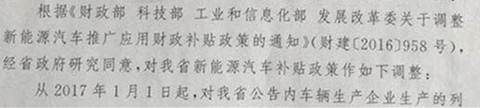 根据《财政部 科技部 工业和信息化部 发展改革委关于调整
新能源汽车推广应用财政补贴政策的通知》(财建〔2016〕958 号),
经省政府研究同意,对我省新能源汽车补贴政策作如下调整:
从 2017 年 1 月 1 日起,对我省公告内车辆生产企业生产的列